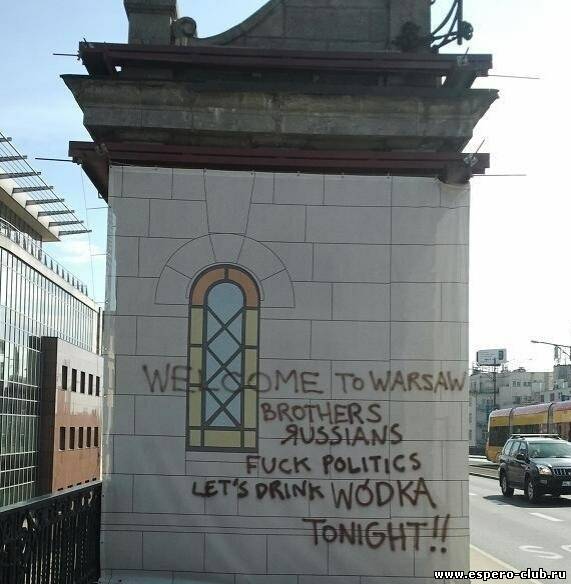 WELCOME TO WARSAW
BROTHERS
ЯUSSIANS
FUCK POLITICS
LET'S DRINK WÓDKA
TONIGHT!!
www.espero-club.ru